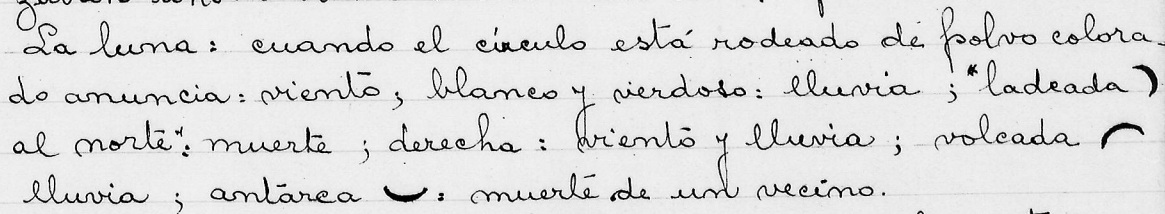 La luna: cuando el círculo está rodeado de polvo colora-
do anuncia: viento; blanco y verdoso: lluvia; "ladeada )
al norte": muerte; derecha: viento y lluvia; volcada ⌒
lluvia; antárca ‿: muerte de un vecino.